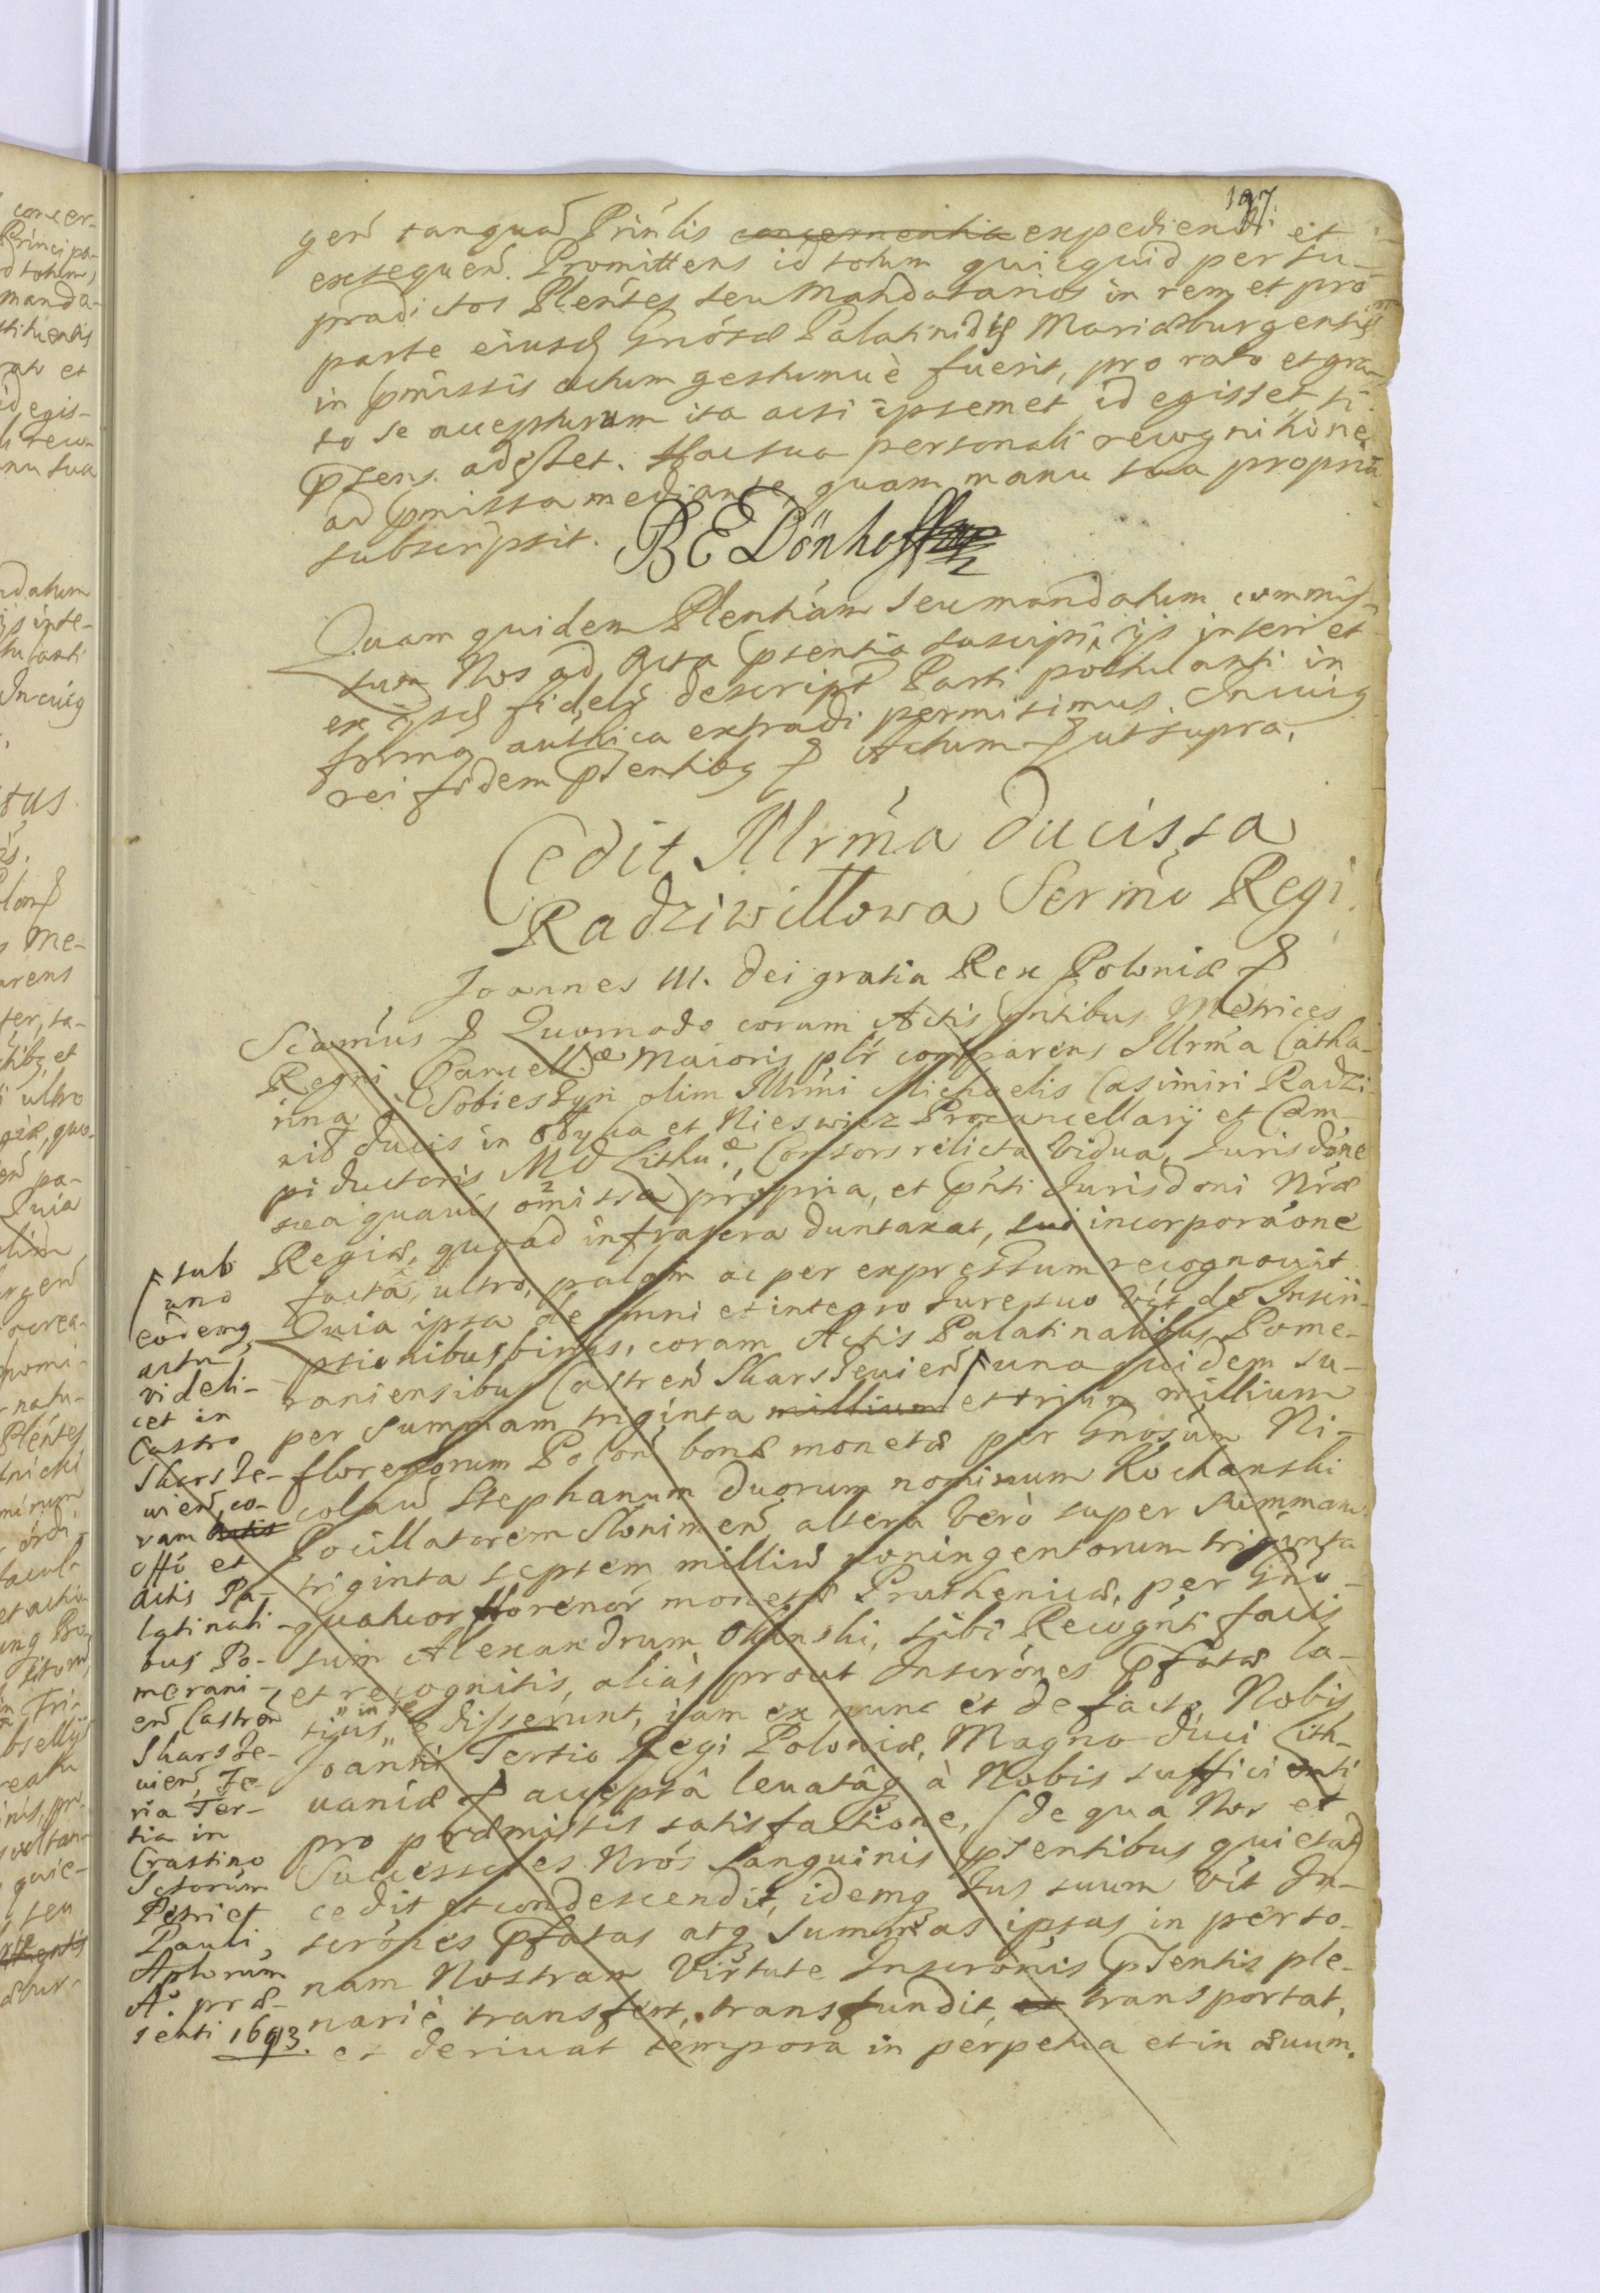 197
gen̄ tanquā Prin̄lis concernentia expediendi et
exsequen̄. Promittens id totum quicquid per su-
pradictos Plen̄tes seu Mandatarios in rem et pro
parte eiusd Gnosæ Palatinidis Mariæburgensis
in præmissis actum gestumuè fuerit, pro rato et gra-
to se accepturum ita acsi ipsemet id egisset, si
præsens adesset. Hac sua personali recognitione
ad præmissa mediante, quam manu sua propria
subscripsit. B E Dönhoff
Quam quidem Plent̄iam seu mandatum commis-
sum Nos ad Acta præsentia suscipi, ijs inseri et
ex ijsd fideli descript Parti postulanti in
forma auth̄ica extradi permisimus. In cuiq
rei fidem præsentibq Actum ut supra.
Cedit Illrm̄a Ducissa
Radziwiłłowa Serm̄o Regi.
Joannes III. Dei gratia Rex Poloniæ
Sciam̄us Quomodo coram Actis præntibus Metrices
Regni Cancellæ Maioris pl̄r comparens Illrm̄a Catha-
rina Sobiesz̄yn olim Illrm̄i Michaelis Casimiri Radzi-
wił Ducis in Ołyka et Nieswiez Procancellarij et Cam-
pi ductoris M D Lithu.æ, Consors relicta Vidua, Jurisdōne
sua quauis omissa propria, et præn̄ti Jurisdoni Nr̄æ
Regiæ, quoad infrascra duntaxat, sui incorporāone
facta, ultro, palam ac per expressum recognouit
Quia ipsa de omni et integro Jure suo v̄ti de Inscri-
ptionibus binis, coram Actis Palatinalibus Pome-
raniensibus Castren̄ Skarszeuien̄ una quidem su-
per Summam triginta millium et trium millium
florenorum Polon̄ bonæ monetæ per Gnosum Ni-
colaū Stephanum duorum nominum Kochanski
Pocillatorem Slonimen̄ altera verò super Summam
triginta septem milliū noningentorum triginta
quatuor florenor̄ monetæ Pruthenicæ, per Gno-
sum Alexandrum Okinski, sibi Recogn̄t factis
et recognitis, aliàs prout Inscrōnes præfatæ la-
tius in se edisserunt, iam ex nunc et de facto, Nobis
Joanni Tertio Regi Poloniæ, Magno Duci Lith-
uaniæ acceptâ leuatâq à Nobis sufficienti
pro præmissis satisfactione, (de qua Nos et
Successores Nrōs Sanguinis præsentibus quietat)
cedit et condescendit, idemq Jus suum v̄t In-
scrōnes præfatas atq Summas ipsas in perso-
nam Nostram Virtute Inscrōnis præsentis ple-
nariè transfert, transfundit, et transportat,
et deriuat tempora in perpetua et in æuum.
sub
uno
eodemq
actu
videli-
cet in
Castro
Skarsze-
uien̄, co-
ram Actis
Offō et
Actis Pa-
latinali-
bus Po-
merani-
en̄ Castren̄
Skarsze-
uien̄, Fe-
ria Ter-
tia in
Crastino
Sctorum
Petri et
Pauli,
Aplorum
A.º præ-
senti 1693.